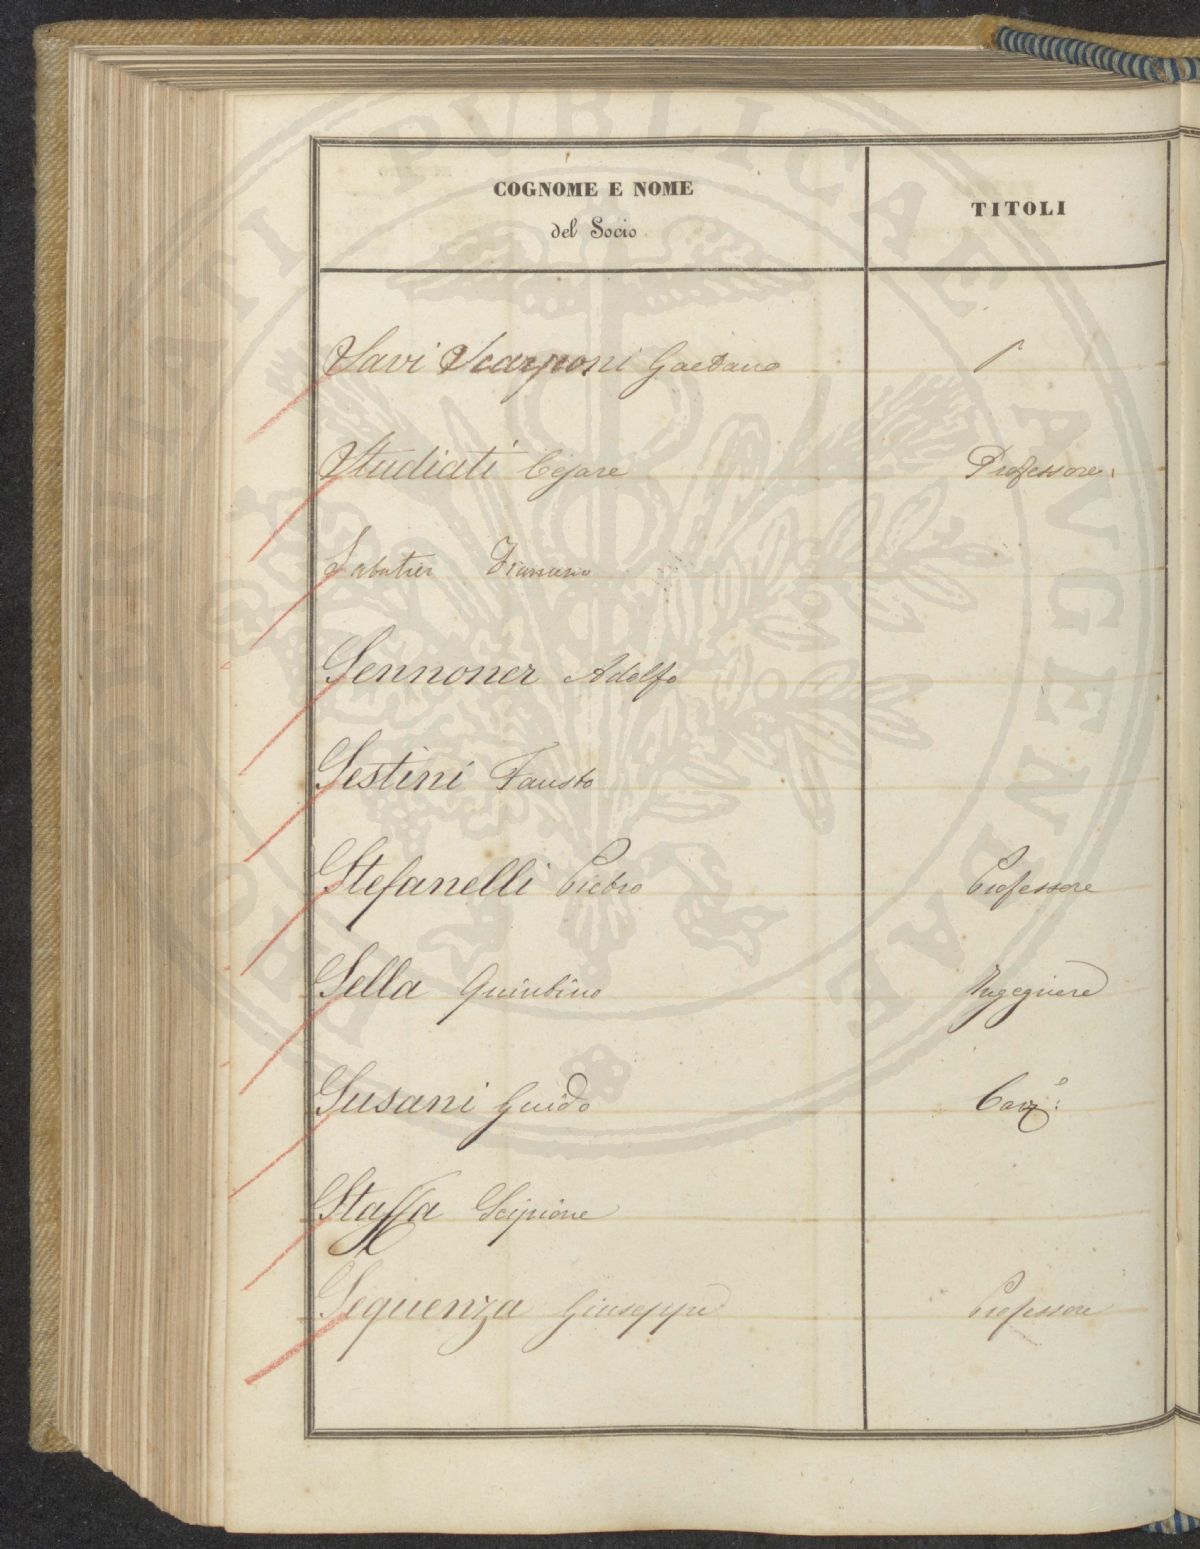 COGNOME E NOME
del Socio
TITOLI
Savi Scarponi Gaetano
Studiati Cesare Professore
Sabatier
Sennoner Adolfo
Sestini Fausto
Stefanelli Pietro Professore
Sella Quintino Ingegnere
Susani Guido Cav.
Staffa Scipione
Seguenza Giuseppe Professore
PROSPERITATI PVBLICAE AVGENDAE